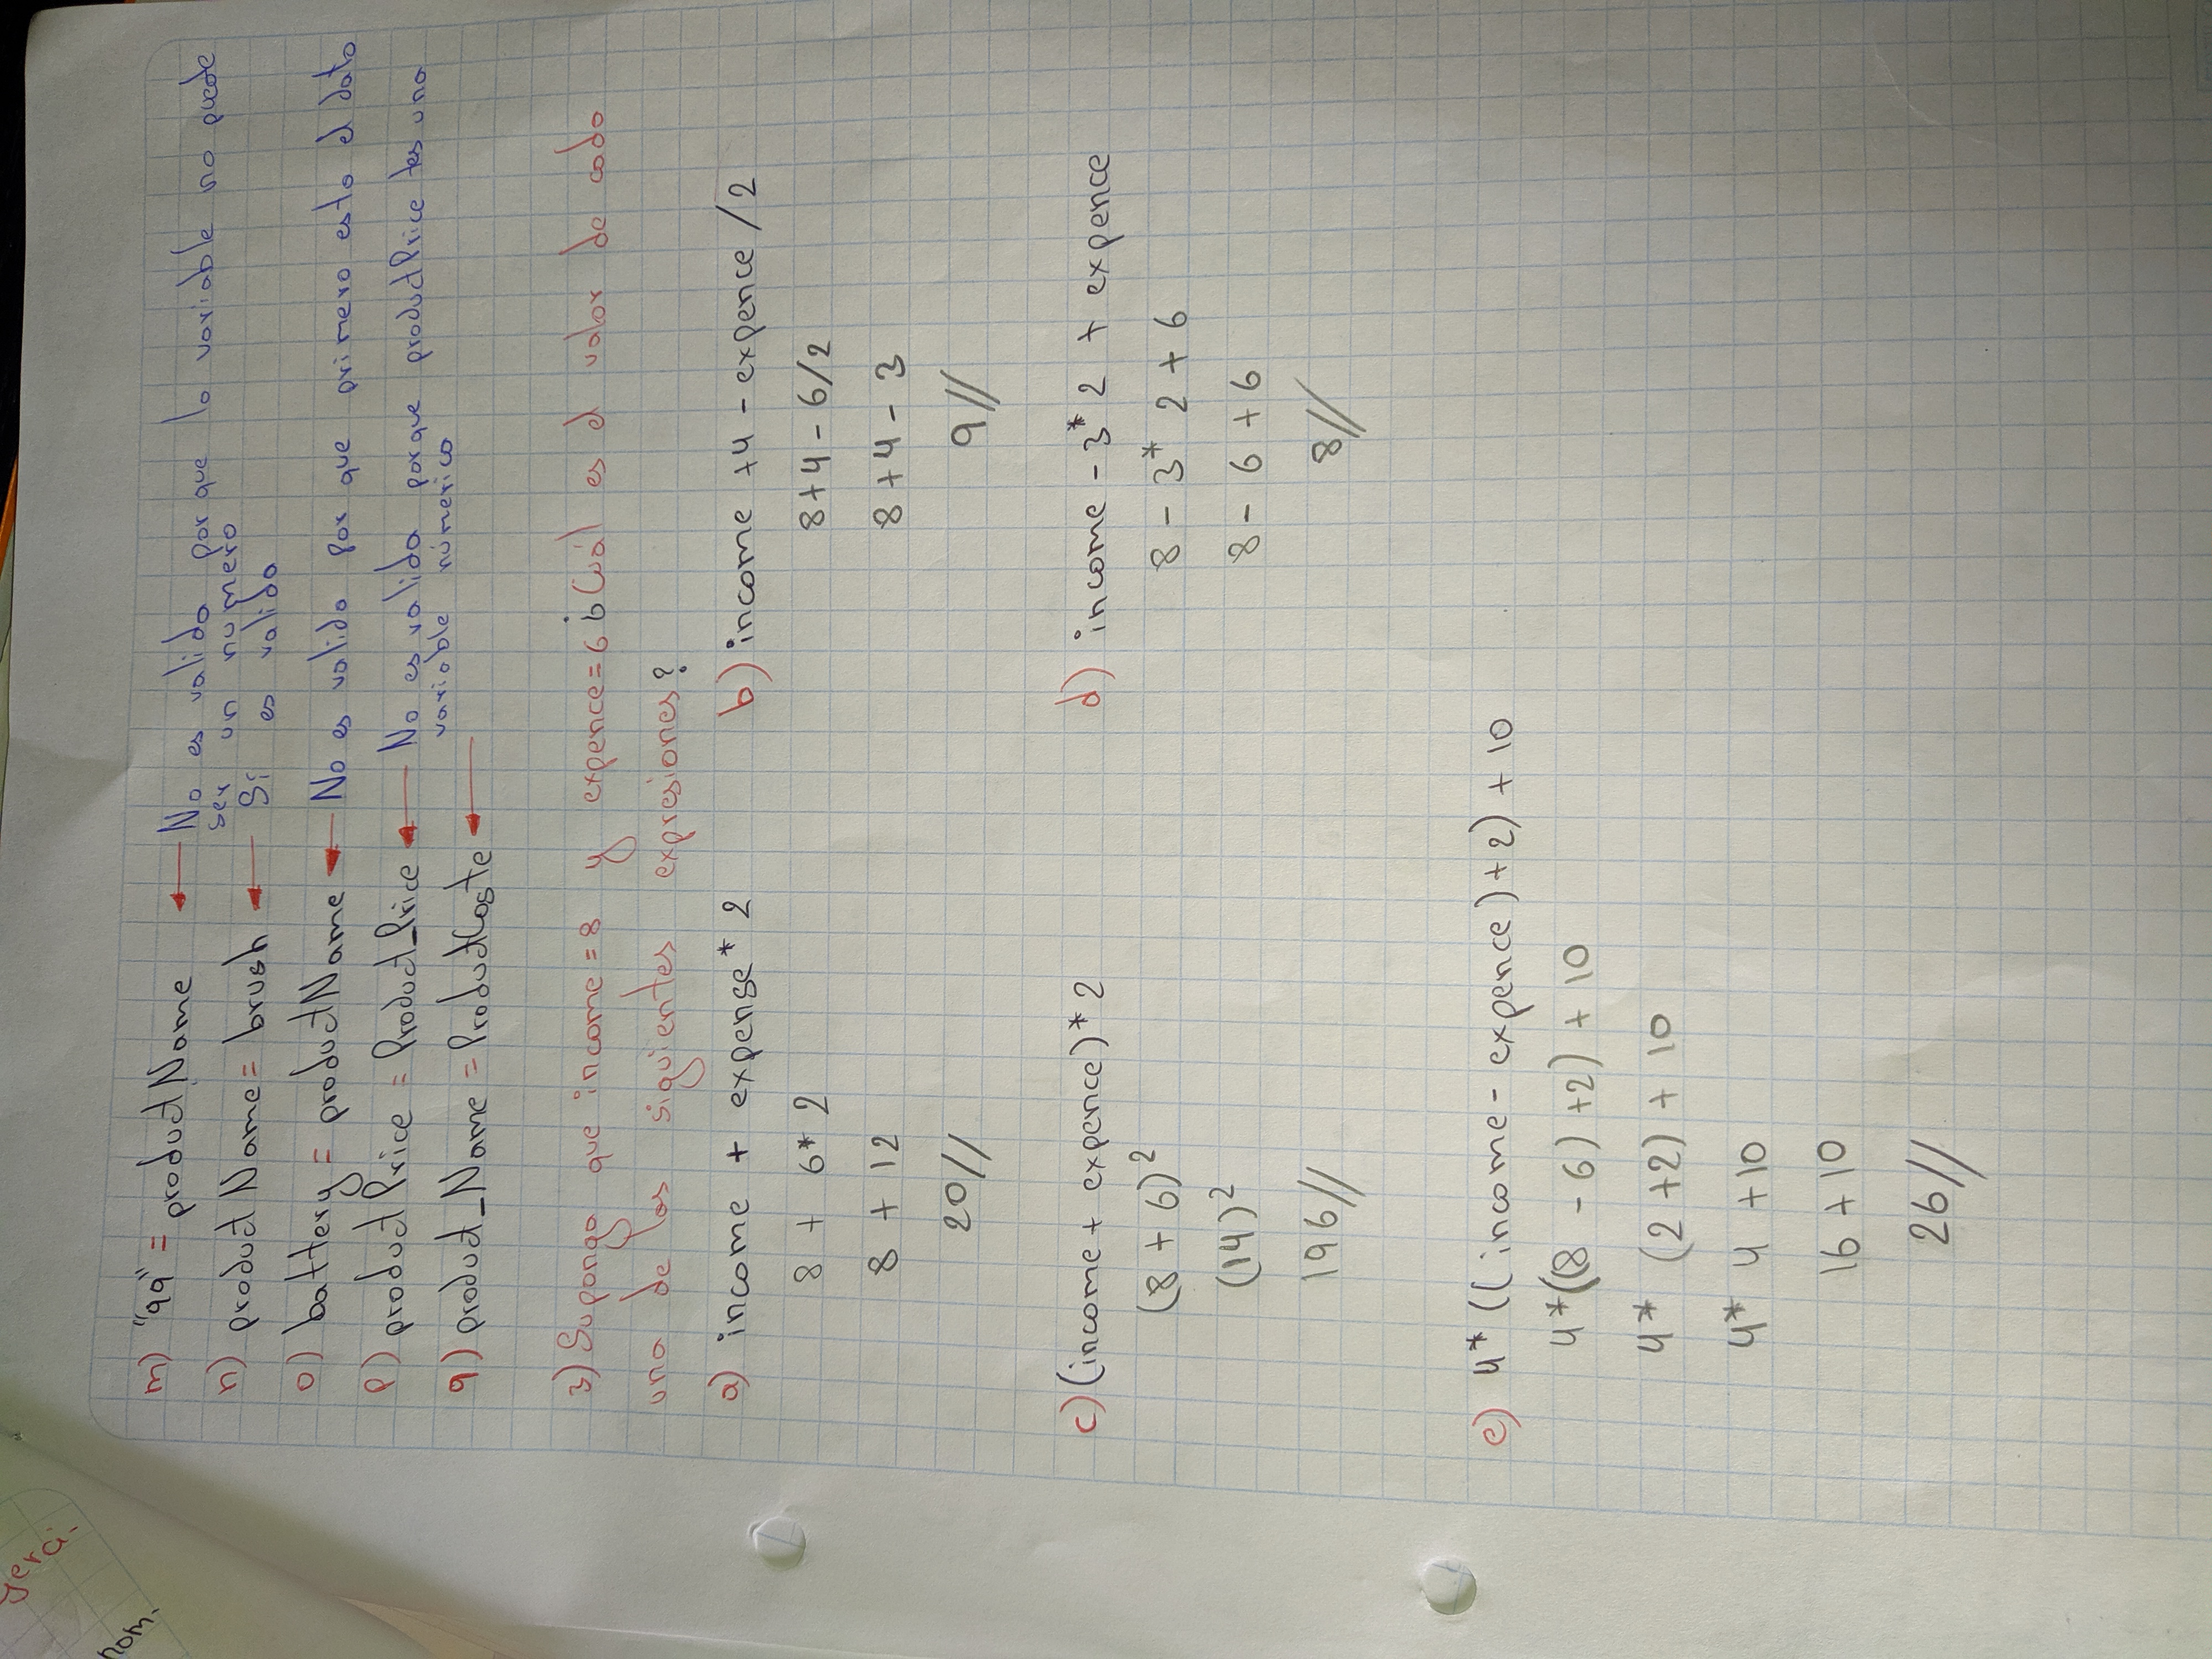 yerci-
nom.
m) "99" = productName ← No es valida por que la variable no puede
ser un numero
n) productName = brush ← Si es valida
o) battery = productName ← No es valido por que primero esta el dato
p) productPrice = Product_Price ← No es valida porque productPrice tes una
variable númerica
q) product_Name = ProductCoste ←
3) Suponga que income = 8 y expence = 6 ¿Cuál es el valor de cada
una de las siguientes expresiones?
a) income + expense * 2
8 + 6 * 2
8 + 12
20//
b) income + 4 - expence / 2
8 + 4 - 6/2
8 + 4 - 3
9//
c) (income + expence) * 2
(8 + 6)²
(14)²
196//
d) income - 3 * 2 + expence
8 - 3 * 2 + 6
8 - 6 + 6
8//
e) 4 * ((income - expence) + 2) + 10
4 * ((8 - 6) + 2) + 10
4 * (2 + 2) + 10
4 * 4 + 10
16 + 10
26//